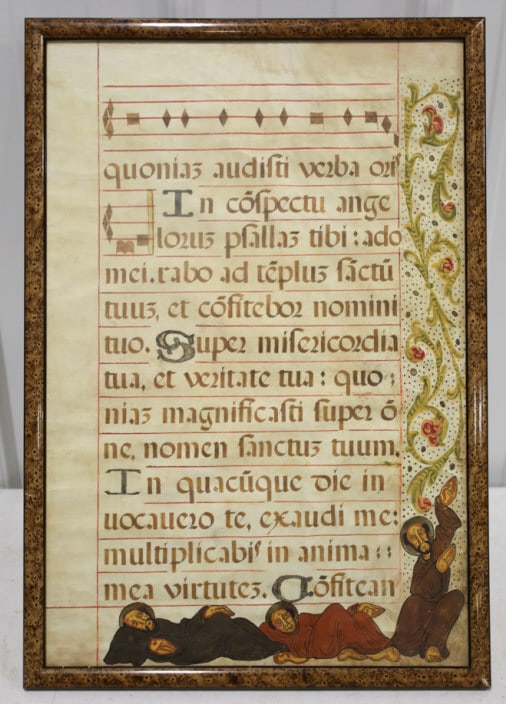 quoniaꝫ audisti verba oriˢ
In cõſpectu ange
loruꝫ pſallaꝫ tibi : ado
mei. rabo ad tẽpluꝫ ſãctũ
tuuꝫ, et cõfitebor nomini
tuo. Super miſericordia
tua, et veritate tua : quo :
niaꝫ magnificaſti ſuper õ
ne, nomen ſanctuꝫ tuum.
In quacũque die in
uocauero te, exaudi me:
multiplicabiˢ in anima ::
mea virtuteꝫ. Cõfitean